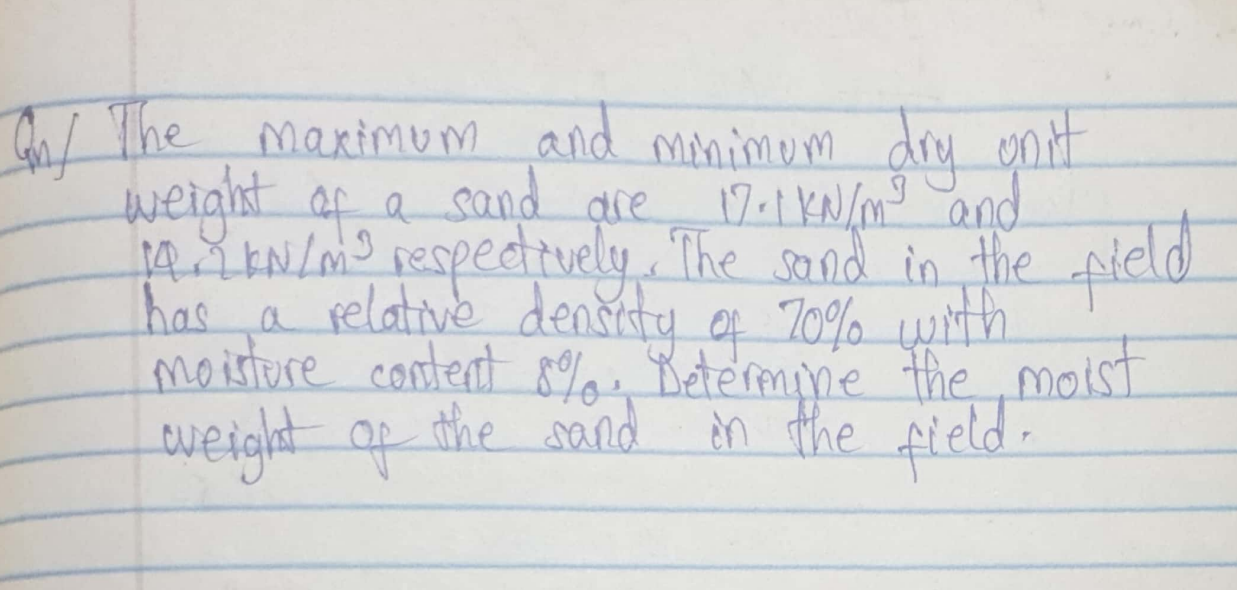 Qn/ The maximum and minimum dry unit
weight of a sand are 17.1 kN/m³ and
14.2 kN/m³ respectively. The sand in the field
has a relative density of 70% with
moisture content 8%. Determine the moist
weight of the sand in the field.